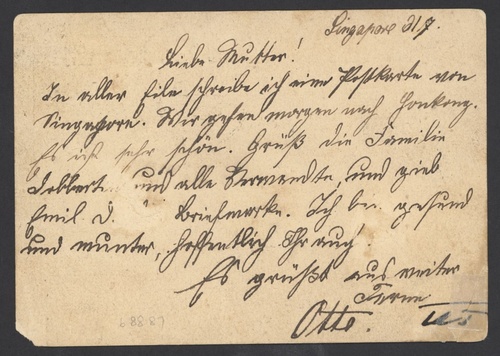 Singapore 21/7.
Liebe Mutter!
In aller Eile schreibe ich eine Postkarte von
Singapore. Wir gehen morgen nach Honkong.
Es ist sehr schön. Grüß die Familie
und alle Verwandte, und gieb
Emil d. Briefmarke. Ich bin gesund
und munter, hoffentlich Ihr auch.
Es grüßt aus weiter
Ferne
Otto.